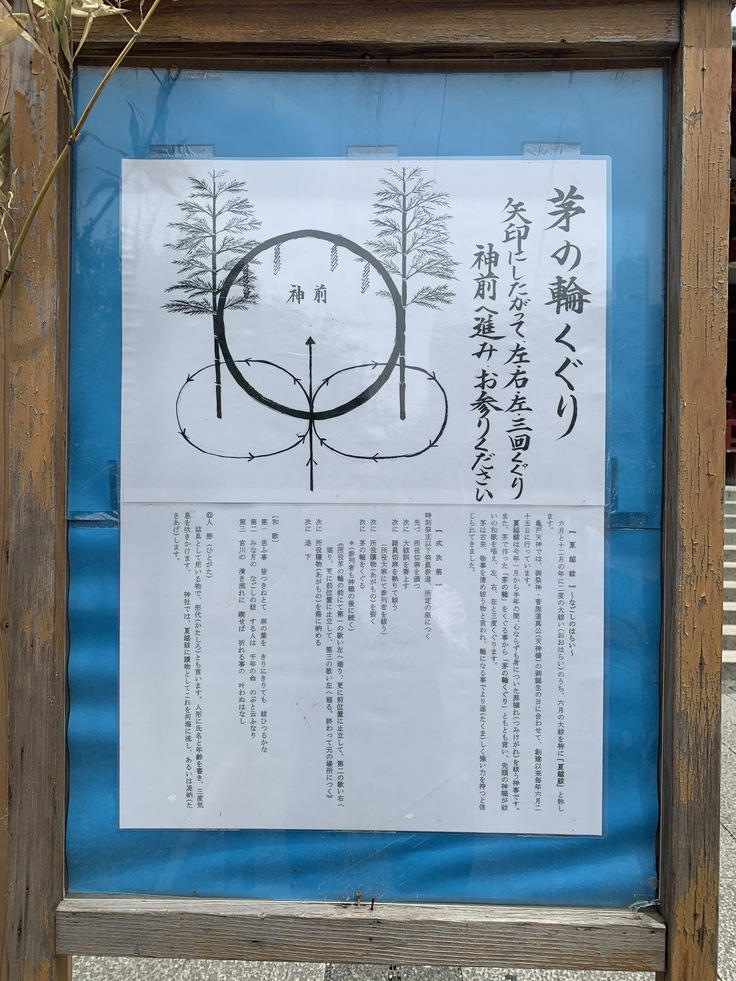 茅の輪くぐり
矢印にしたがって、左・右・左、三回くぐり
神前へ進み、お参りください
神前
【夏越祓】～なごしのはらい～
六月と十二月の年に二度の大祓い（おおはらい）のうち、六月の大祓を特に「夏越祓」と称し
ます。
亀戸天神では、御祭神・菅原道真公（天神様）の御誕生の日に合わせて、創建以来毎年六月二
十五日に行っています。
夏越祓は今年一月から半年の間、心ならずも身についた罪穢れ（つみけがれ）を祓う神事です。
また、茅で作った「茅の輪」をくぐる事から「茅の輪くぐり」ともとも言い、先頭の神職が祓
いの和歌を唱え、左、右、左と三度くぐります。
茅は古来、物事を清め祓う物と言われ、輪になる事でより逞（たくま）しく強い力を持つと信
じられてきました。
【式次第】
時刻祭主以下祭員参進、所定の座につく
先づ 所役切麻を頒つ
次に 大祓詞を奏上す
次に 諸員切麻を執りて祓う
（所役大麻にて参列者を祓う）
次に 所役贖物（あがもの）を裂く
次に 茅の輪をくぐる
＊（参列者も神職の後に続く）
（所役茅の輪の前にて第一の歌い左へ廻り、更に前位置に止立して、第二の歌い右へ
廻り、更に前位置に止立して、第三の歌い左へ廻る。終わって元の場所につく）
次に 所役贖物（あがもの）を箱に納める
次に 退 下
（和 歌）
第一 思ふ事 皆つきねとて 麻の葉を きりにきりても 祓ひつるかな
第二 みな月の なごしの祓 する人は 千年の命 のぶと云ふなり
第三 宮川の 清き流れに 禊せば 祈れる事の 叶わぬはなし
◎人 形（ひとがた）
祓具として用いる物で、形代（かたしろ）とも言います。人形に氏名と年齢を書き、三度気
息を吹きかけます。 神社では、夏越祓に贖物としてこれを河海に流し、あるいは焼納（た
きあげ）します。